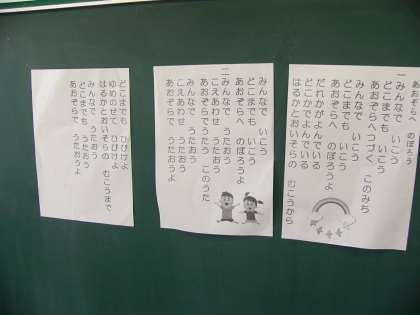 あおぞらへ のぼろう
一 みんなで いこう
どこまでも いこう
あおぞらへつづく このみち
みんなで いこう
どこまでも いこう
あおぞらへ のぼろうよ
だれかがよんでいる
どこかでよんでいる
はるかとおいそらの むこうから
みんなで いこう
どこまでも いこう
あおぞらへ のぼろうよ
二 みんなで うたおう
こえあわせ うたおう
あおぞらでうたう このうた
みんなで うたおう
こえあわせ うたおう
あおぞらで うたおうよ
どこまでも ひびけよ
ゆめのせて ひびけよ
はるかとおいそらの むこうまで
みんなで うたおう
どこまでも うたおう
あおぞらで うたおうよ